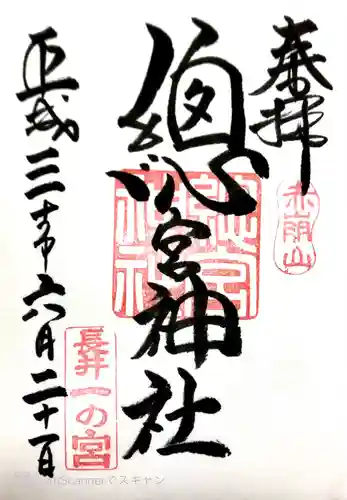 奉拝
赤崩山
總宮神社
總宮神社
平成三十年六月二十日
長井一の宮
Scannerでスキャン